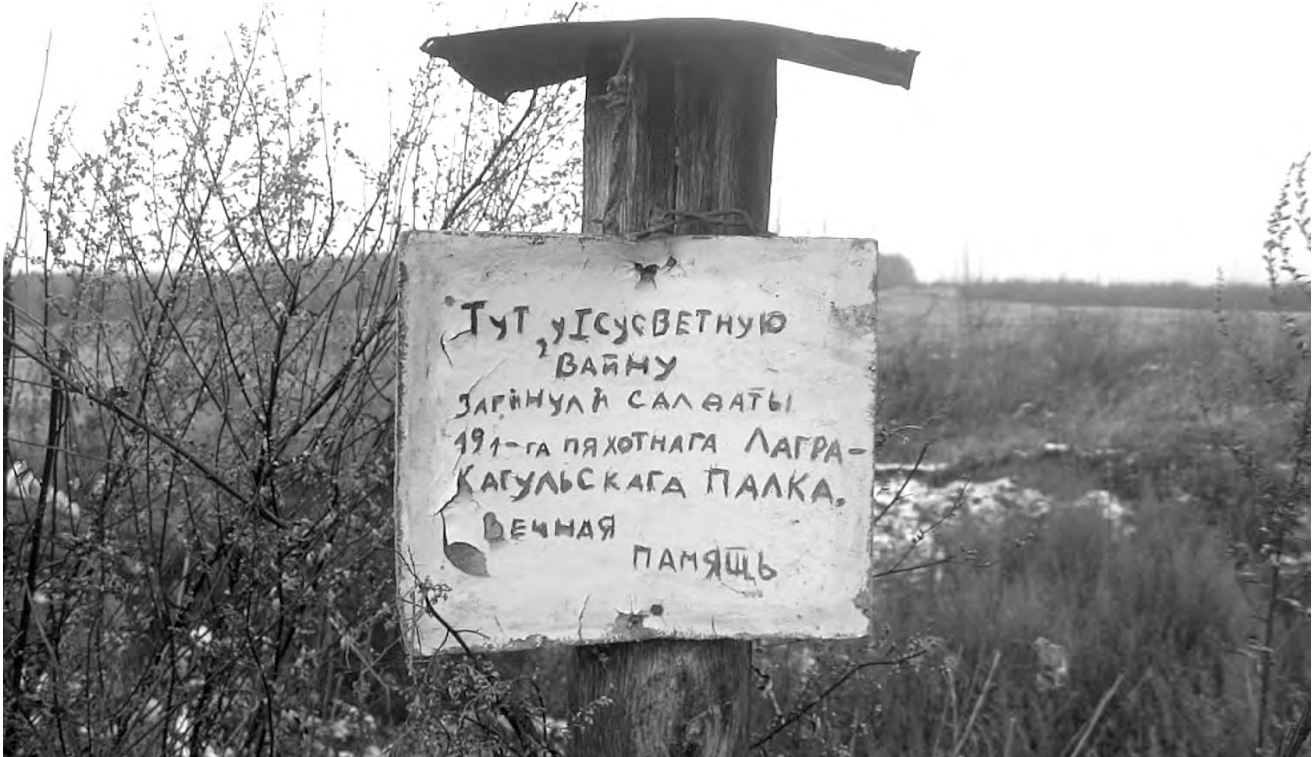 Тут, у I сусветную
вайну
загинули салдаты
191-га пяхотнага Ларга-
Кагульскага палка.
Вечная
памящь